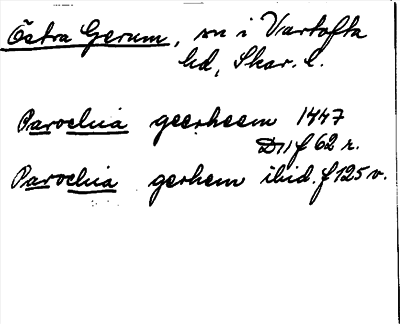 Östra Gerum, sn i Vartofta
hd, Skar. l.
Parochia geerheem 1447
D11 f 62 r.
Parochia gerhem ibid. f 125 v.